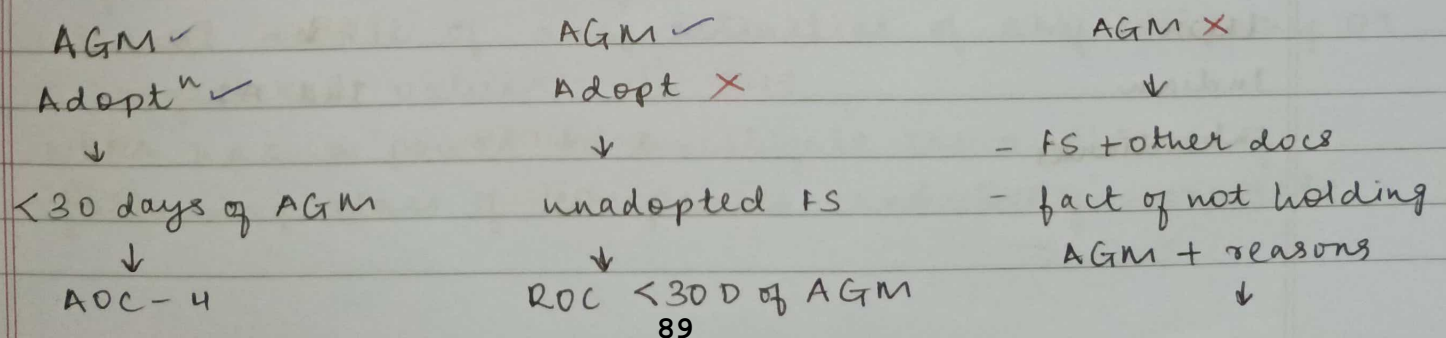 AGM ✓
Adoptⁿ ✓
↓
<30 days of AGM
↓
AOC-4
AGM ✓
Adopt ✗
↓
unadopted FS
↓
ROC <30 D of AGM
AGM ✗
↓
- FS + other docs
- fact of not holding
AGM + reasons
↓
89